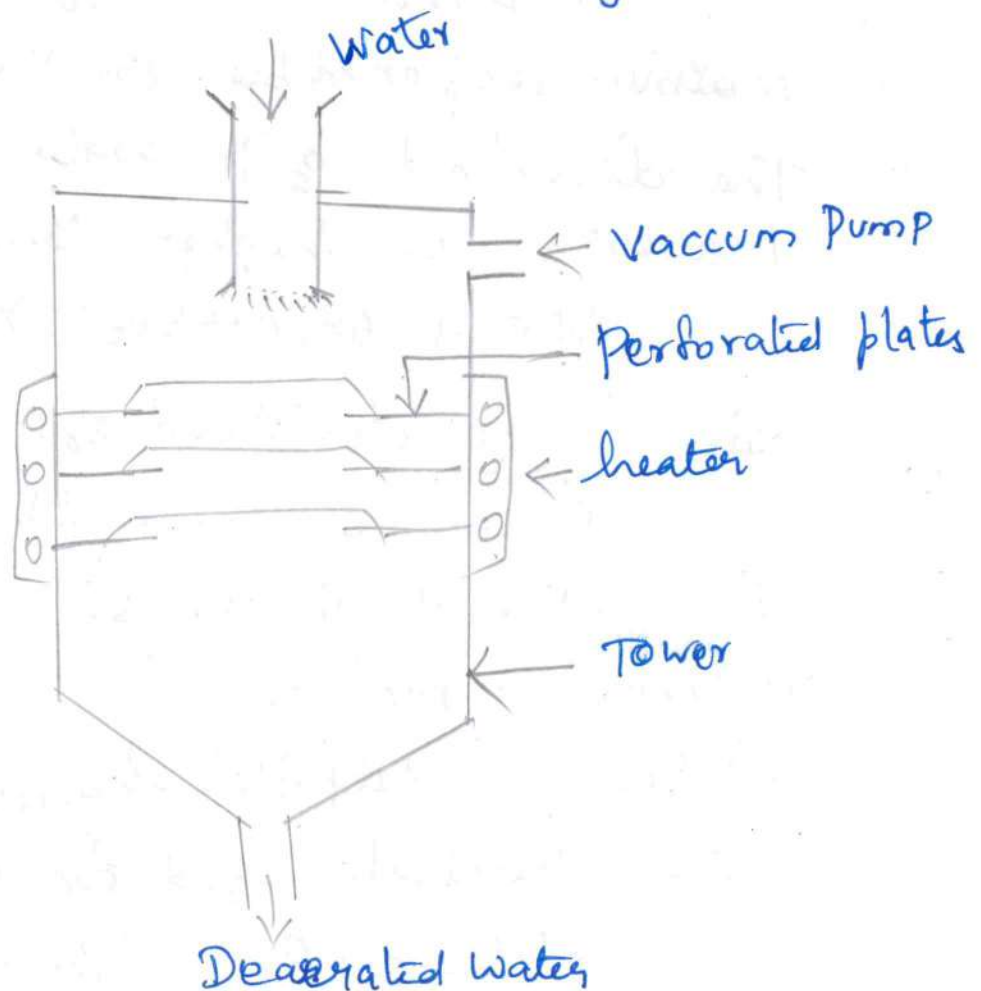 Water
Vaccum Pump
Perforated plates
heater
Tower
Deaerated Water